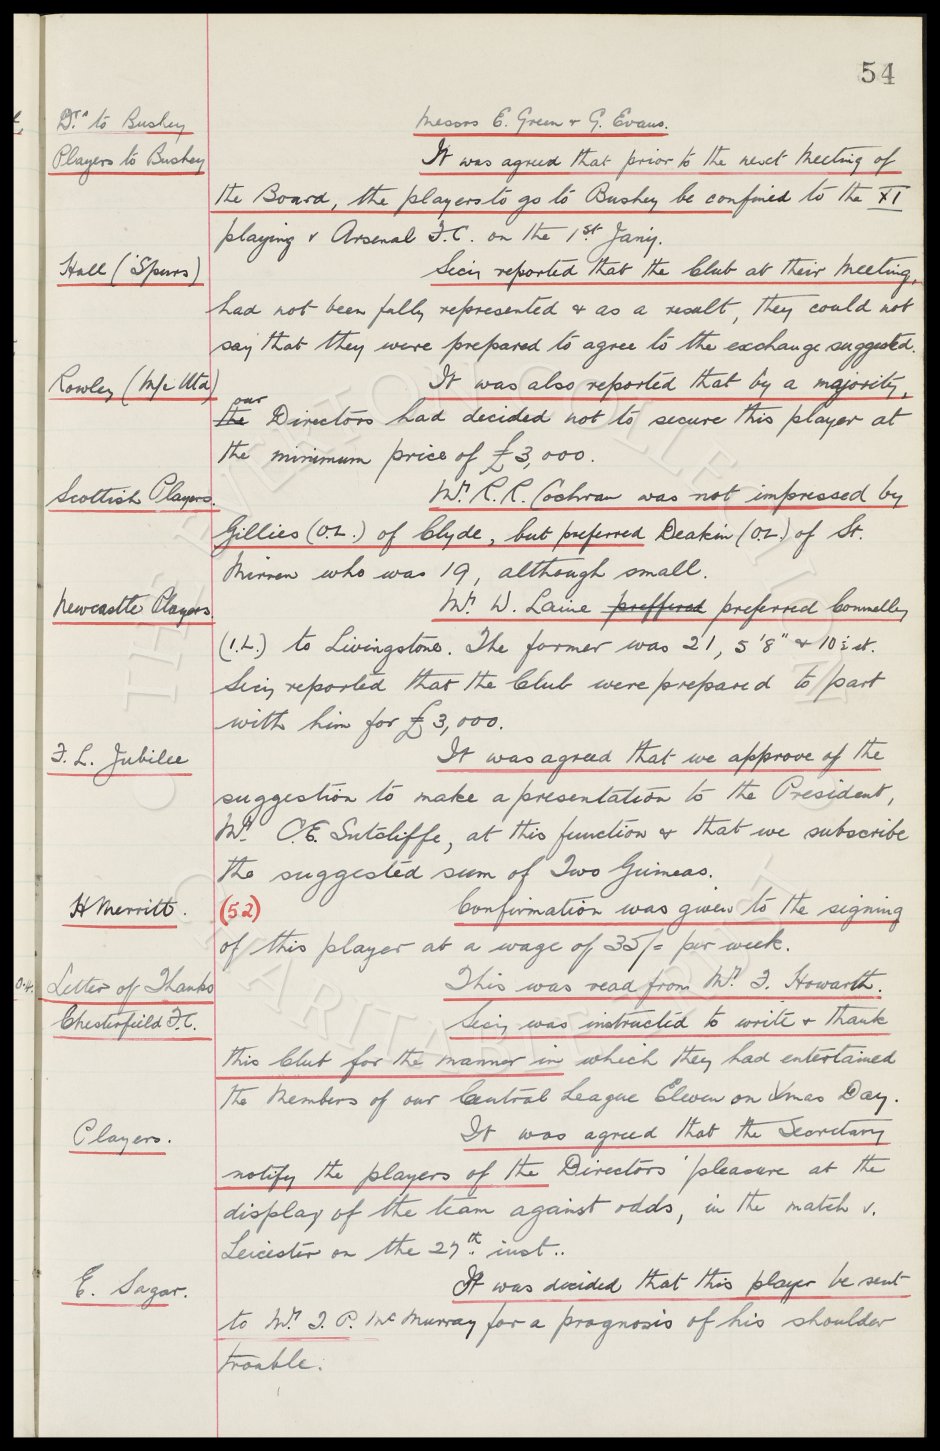 54
Drs to Bushey Messrs E. Green & G. Evans.
Players to Bushey It was agreed that prior to the next Meeting of
the Board, the players to go to Bushey be confined to the XI
playing v Arsenal F.C. on the 1st Jany.
Hall ('Spurs) Secy reported that the Club at their Meeting,
had not been fully represented & as a result, they could not
say that they were prepared to agree to the exchange suggested.
Rowley (M/c Utd) It was also reported that by a majority,
our
the Directors had decided not to secure this player at
the minimum price of £3,000.
Scottish Players. Mr. R.R. Cochran was not impressed by
Gillies (O.L.) of Clyde, but preferred Deakin (O.L.) of St.
Mirren who was 19, although small.
Newcastle Players. Mr. W. Laine preffered preferred Connelley
(I.L.) to Livingstone. The former was 21, 5'8" & 10½ st.
Secy reported that the Club were prepared to part
with him for £3,000.
F.L. Jubilee It was agreed that we approve of the
suggestion to make a presentation to the President,
Mr. C.E. Sutcliffe, at this function & that we subscribe
the suggested sum of Two Guineas.
H Merritt. (52) Confirmation was given to the signing
of this player at a wage of 35/= per week.
Letter of Thanks This was read from Mr. F. Howarth.
Chesterfield F.C. Secy was instructed to write & thank
this Club for the manner in which they had entertained
the Members of our Central League Eleven on Xmas Day.
Players. It was agreed that the Secretary
notify the players of the Directors' pleasure at the
display of the team against odds, in the match v.
Leicester on the 27th. inst..
E. Sagar. It was decided that this player be sent
to Mr. T.P. McMurray for a prognosis of his shoulder
trouble.
THE EVERTON COLLECTION
CHARITABLE TRUST